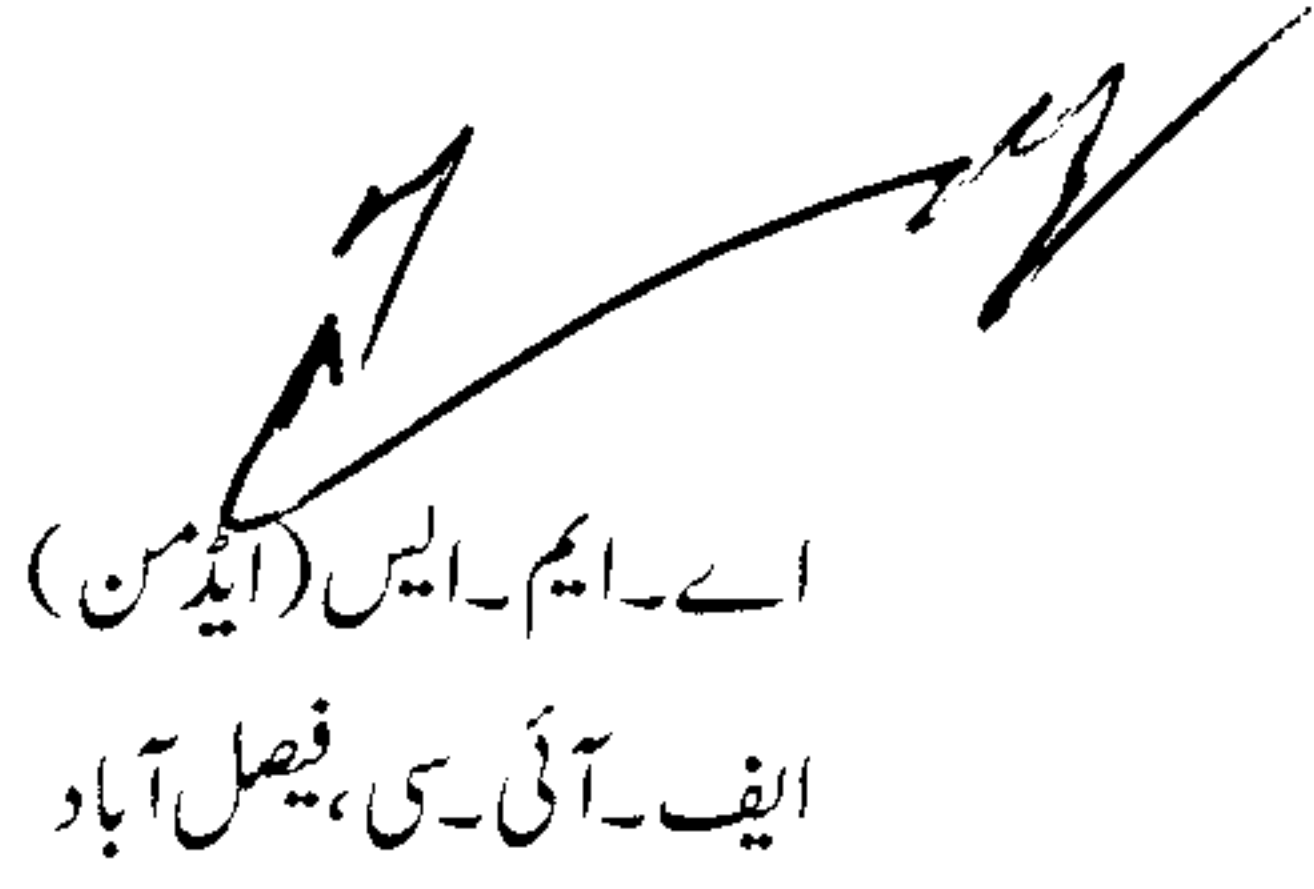 اے۔ایم۔ایس(ایڈمن)
ایف۔آئی۔سی،فیصل آباد